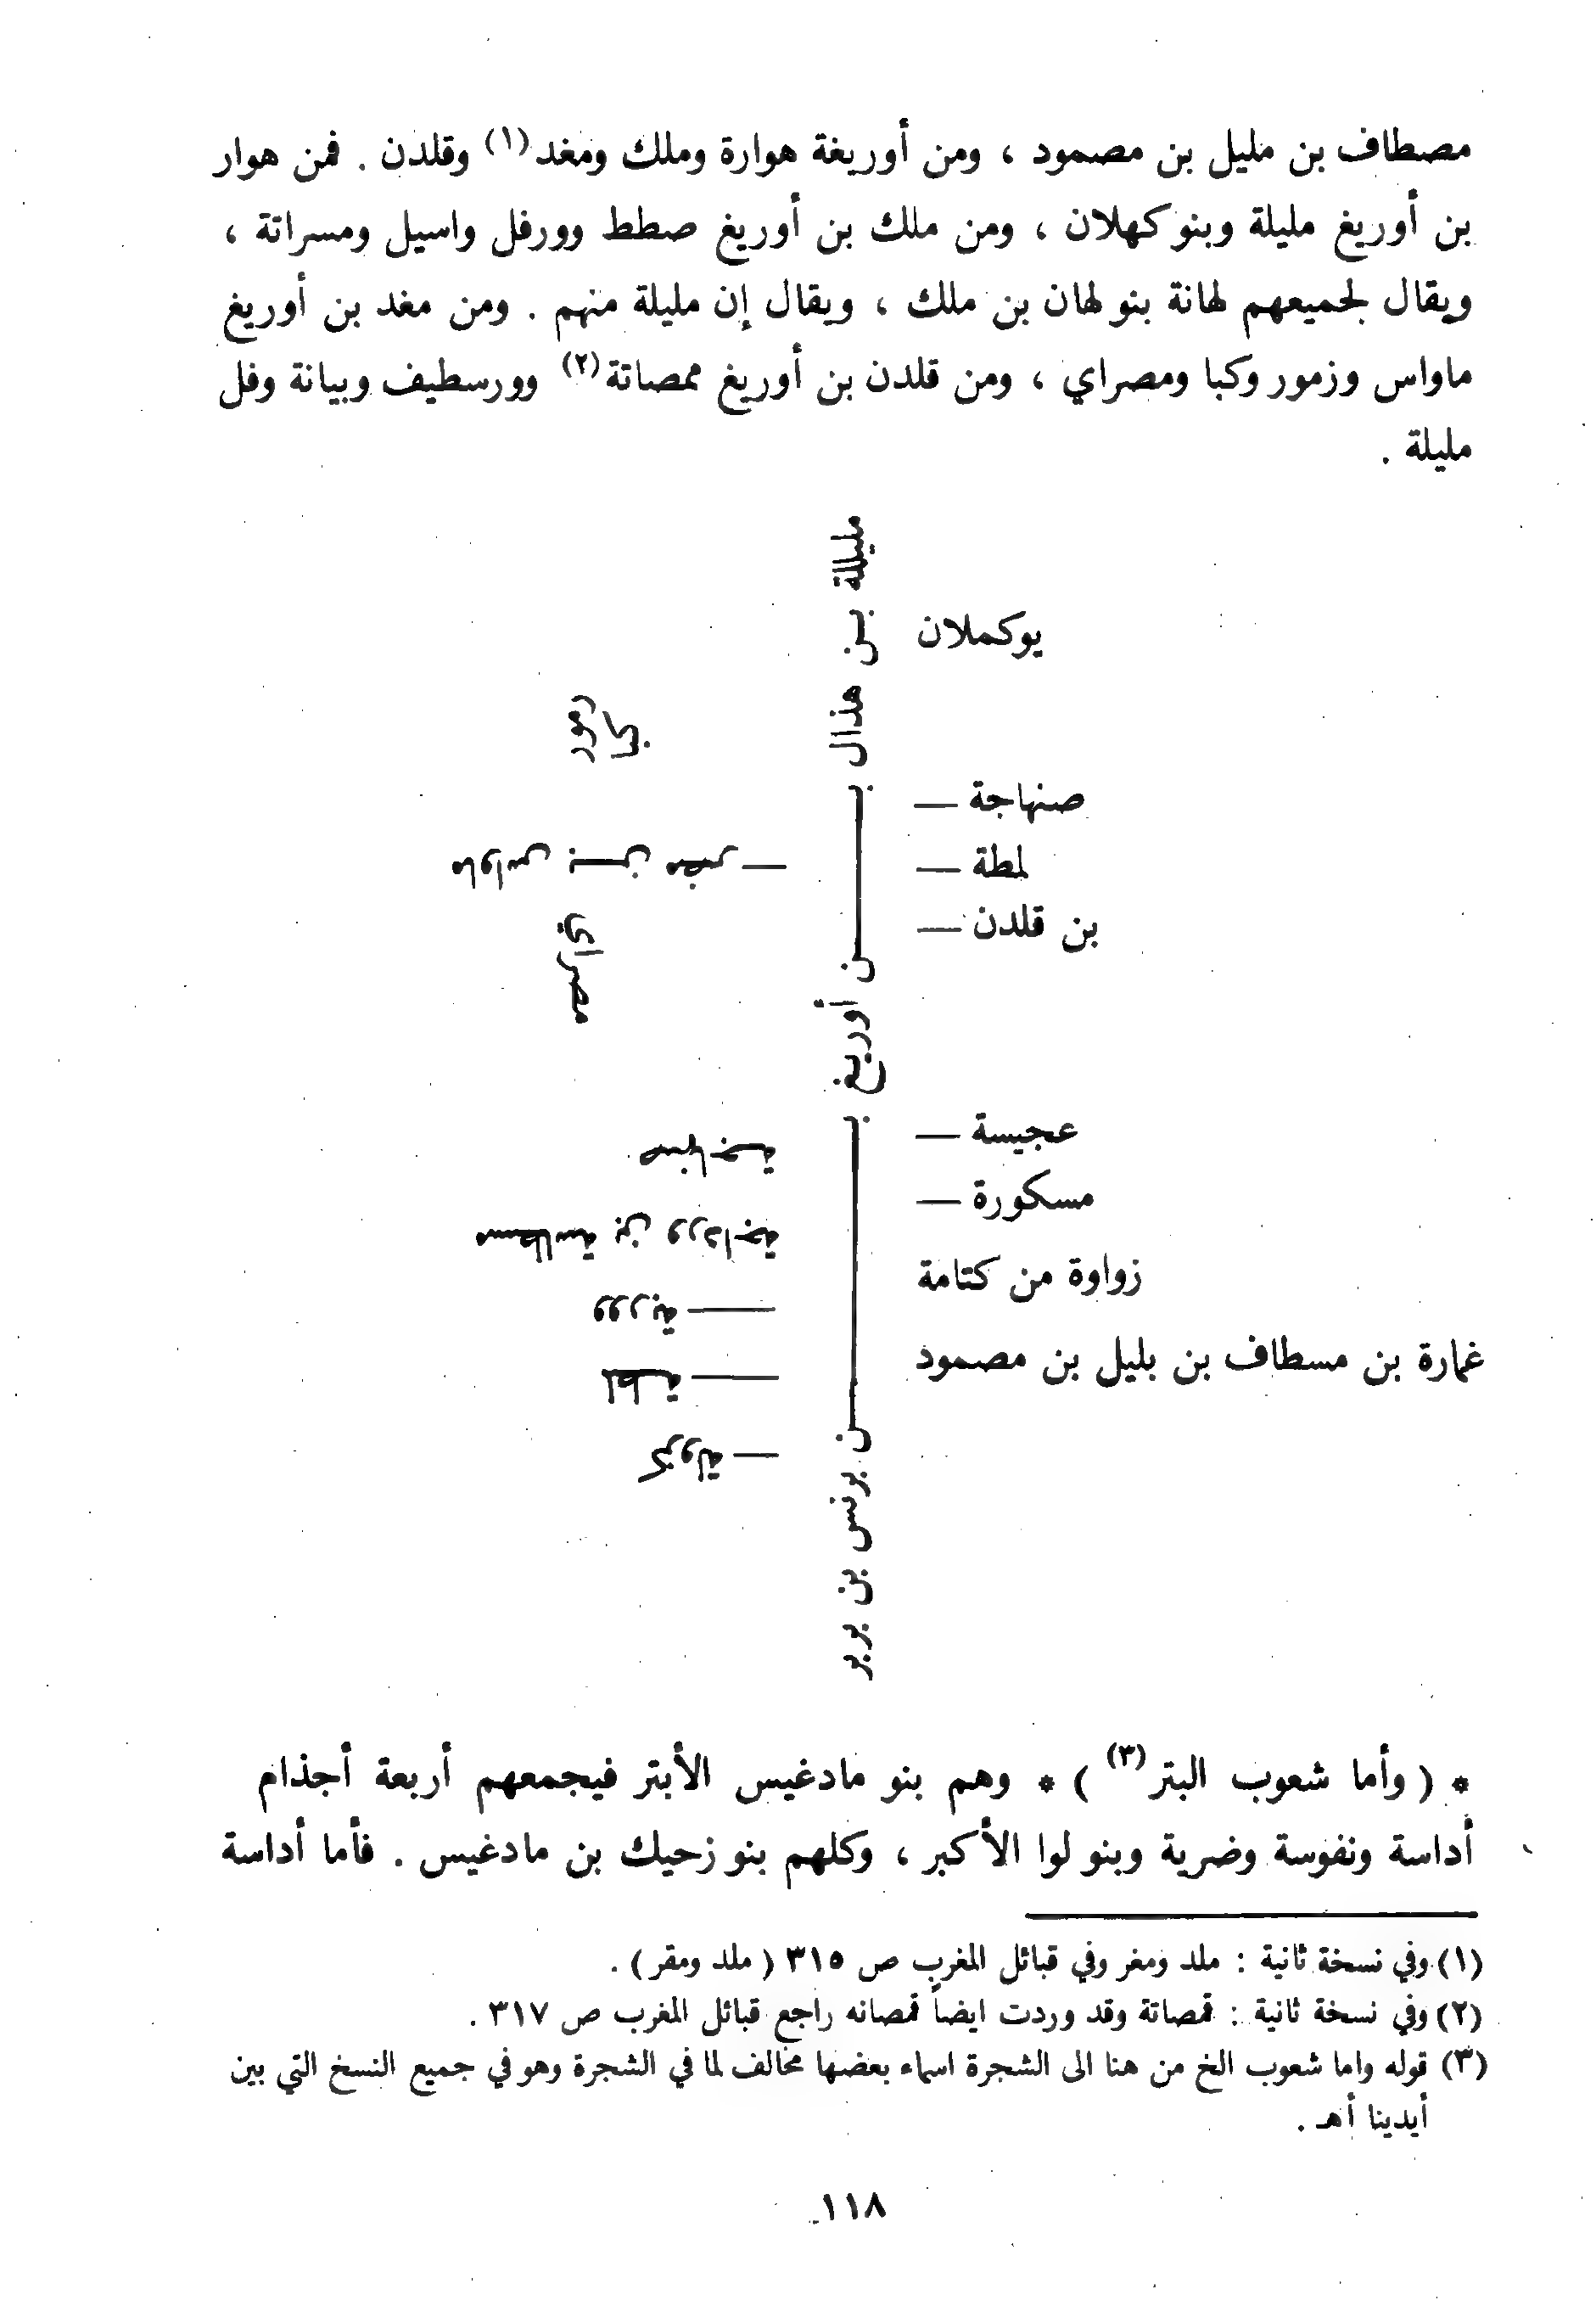 مصطاف بن مليل بن مصمود ، ومن أوريغة هوارة وملك ومغد(١) وقلدن . فمن هوار
بن أوريغ مليلة وبنو كهلان ، ومن ملك بن أوريغ صطط وورفل واسيل ومسراتة ،
ويقال لجميعهم لهانة بنو لهان بن ملك ، ويقال إن مليلة منهم . ومن مغد بن أوريغ
ماواس وزمور وكبا ومصراي ، ومن قلدن بن أوريغ ممصاتة(٢) وورسطيف وبيانة وفل
مليلة .
مليللة بن هذال بن أوريغ بن برنس بن بربر
يوكملان
صنهاجة —
لمطة —
بن قلدن —
عجيسة —
مسكورة —
زواوة من كتامة
غمارة بن مسطاف بن بليل بن مصموذ
زمور
كبا
ماواس بن —
مصراي
صنهاجة
مسطاسة بن ورداجة
وورية —
لمطة —
كزولة —
* ( وأما شعوب البتر(٣) ) * وهم بنو مادغيس الأبتر فيجمعهم أربعة أجذام
أداسة ونفوسة وضرية وبنو لوا الأكبر ، وكلهم بنو زحيك بن مادغيس . فأما أداسة
(١) وفي نسخة ثانية : ملد ومغر وفي قبائل المغرب ص ٣١٥ ( ملد ومقر ) .
(٢) وفي نسخة ثانية : قمصاتة وقد وردت ايضاً قمصانه راجع قبائل المغرب ص ٣١٧ .
(٣) قوله واما شعوب الخ من هنا الى الشجرة اسماء بعضها مخالف لما في الشجرة وهو في جميع النسخ التي بين
أيدينا أهـ .
١١٨